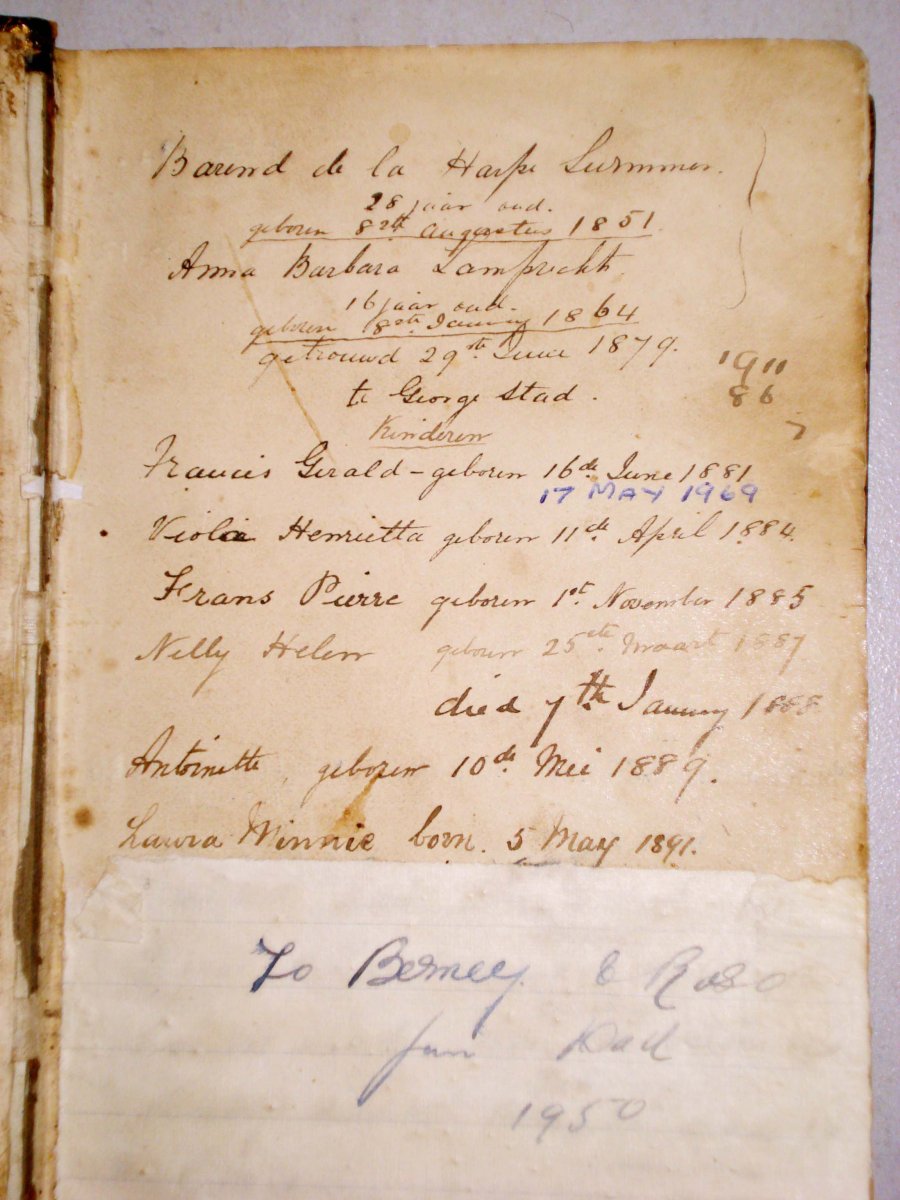 Barend de la Harpe
28 jaar oud.
geboren 8ste Augustus 1851
Anna Barbara Lamprecht
16 jaar oud.
geboren 8ste January 1864
getrouwd 29ste June 1879.
te George Stad.
1911
86
Kinderen
Francis Gerald - geboren 16de June 1881
17 MAY 1969
Viola Henrietta geboren 11de April 1884.
Frans Pierre geboren 1st. November 1885
Nelly Helen geboren 25ste Maart 1887
died 7th January 1888
Antoinette, geboren 10de Mei 1889.
Laura Winnie born. 5 May 1891.
To & 
Dad
1950